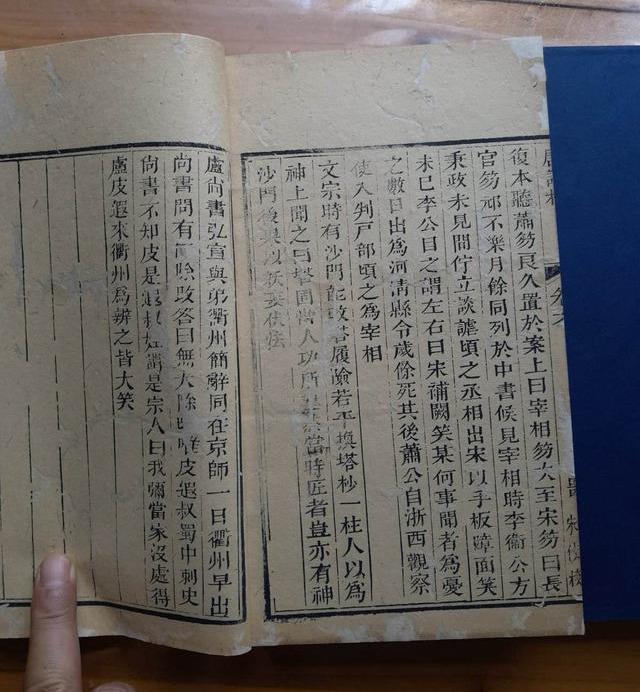 唐語林 卷六
復本聽蕭笏良久置於案上曰宰相笏次至宋笏曰長
官笏邧不樂月餘同列於中書候見宰相時李衞公方
秉政未見間佇立談謔頃之丞相出宋以手板障面笑
未已李公目之謂左右曰宋補闕笑某何事聞者爲憂
之數日出爲河清縣令歲餘死其後蕭公自浙西觀察
使入判戸部頃之爲宰相
文宗時有沙門能改塔履險若平換塔杪一柱人以爲
神上聞之曰塔固當人功所 當時匠者豈亦有神
沙門後果以妖妄伏法
盧尚書弘宣與弟衢州簡辭同在京師一日衢州早出
尚書問有何除改答曰無大除改唯皮遐叔蜀中刺史
尚書不知皮是遐叔姓謂是宗人曰我彌當家沒處得
盧皮遐來衢州爲辨之皆大笑